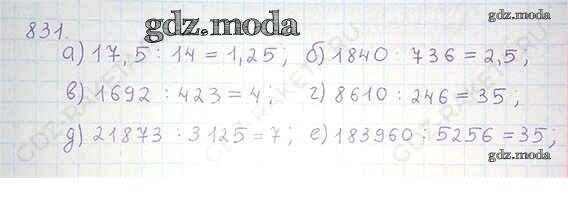 gdz.moda
831.
а) 17,5 : 14 = 1,25 ; б) 1840 : 736 = 2,5 ;
в) 1692 : 423 = 4 ; г) 8610 : 246 = 35 ;
д) 21873 : 3125 = 7 ; е) 183960 : 5256 = 35 ;
gdz.moda